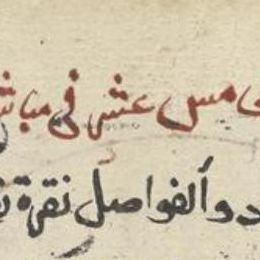 مس عشر في مباش
د والفواصل نقرة